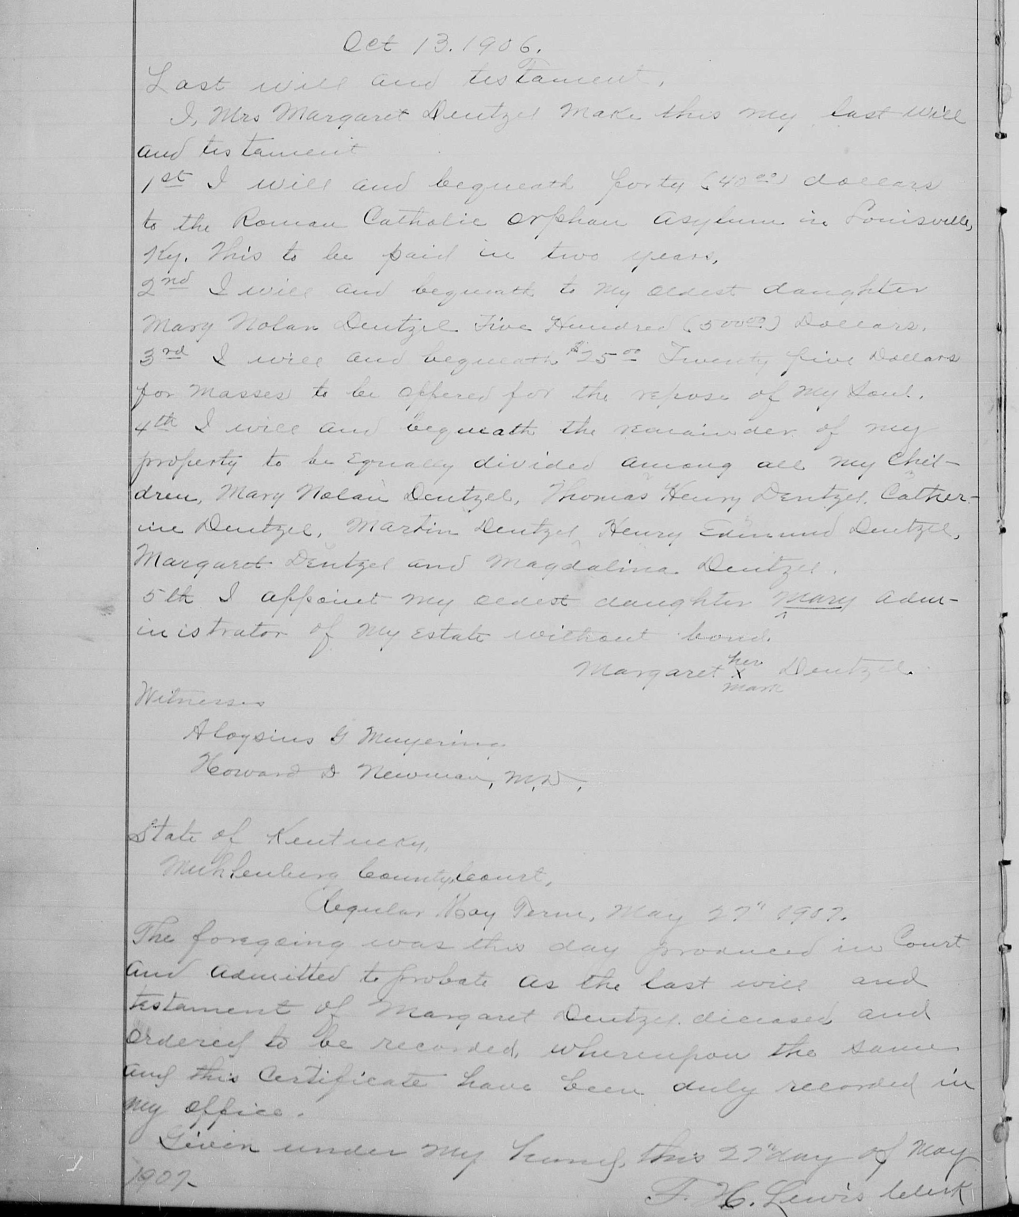 Oct 13. 1906.
Last will and testament.
I, Mrs Margaret Dentzel make this my last will
and testament
1st I will and bequeath forty (40.00) dollars
to the Roman Catholic orphan asylum in Louisville,
Ky. This to be paid in two years.
2nd I will and bequeath to my oldest daughter
Mary Nolan Dentzel Five Hundred (500.00) Dollars.
3rd I will and bequeath $25.00 Twenty five Dollars
for masses to be offered for the repose of my soul.
4th I will and bequeath the remainder of my
property to be Equally divided among all my chil-
dren, Mary Nolan Dentzel, Thomas Henry Dentzel, Cather-
ine Dentzel, Martin Dentzel, Henry Edmund Dentzel,
Margaret Dentzel and Magdalina Dentzel.
5th I appoint my oldest daughter Mary adm-
inistrator of my Estate without bond.
Margaret her x mark Dentzel.
Witnesses
Aloysius G
Howard D Newman, M.D.
State of Kentucky,
Muhlenburg County Court,
Regular May Term, May 27" 1907.
The foregoing was this day produced in Court
and admitted to probate as the last will and
testament of Margaret Dentzel diceased and
ordered to be recorded, whereupon the same
and this Certificate have been duly recorded in
my office.
Given under my hand, this 27" day of May
1907-
F. H. Lewis Clerk